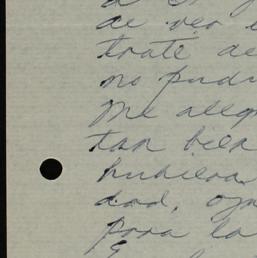 de ver
trate de
no pud
Me aleg
tan bien
hubiera
dad, oj
para la